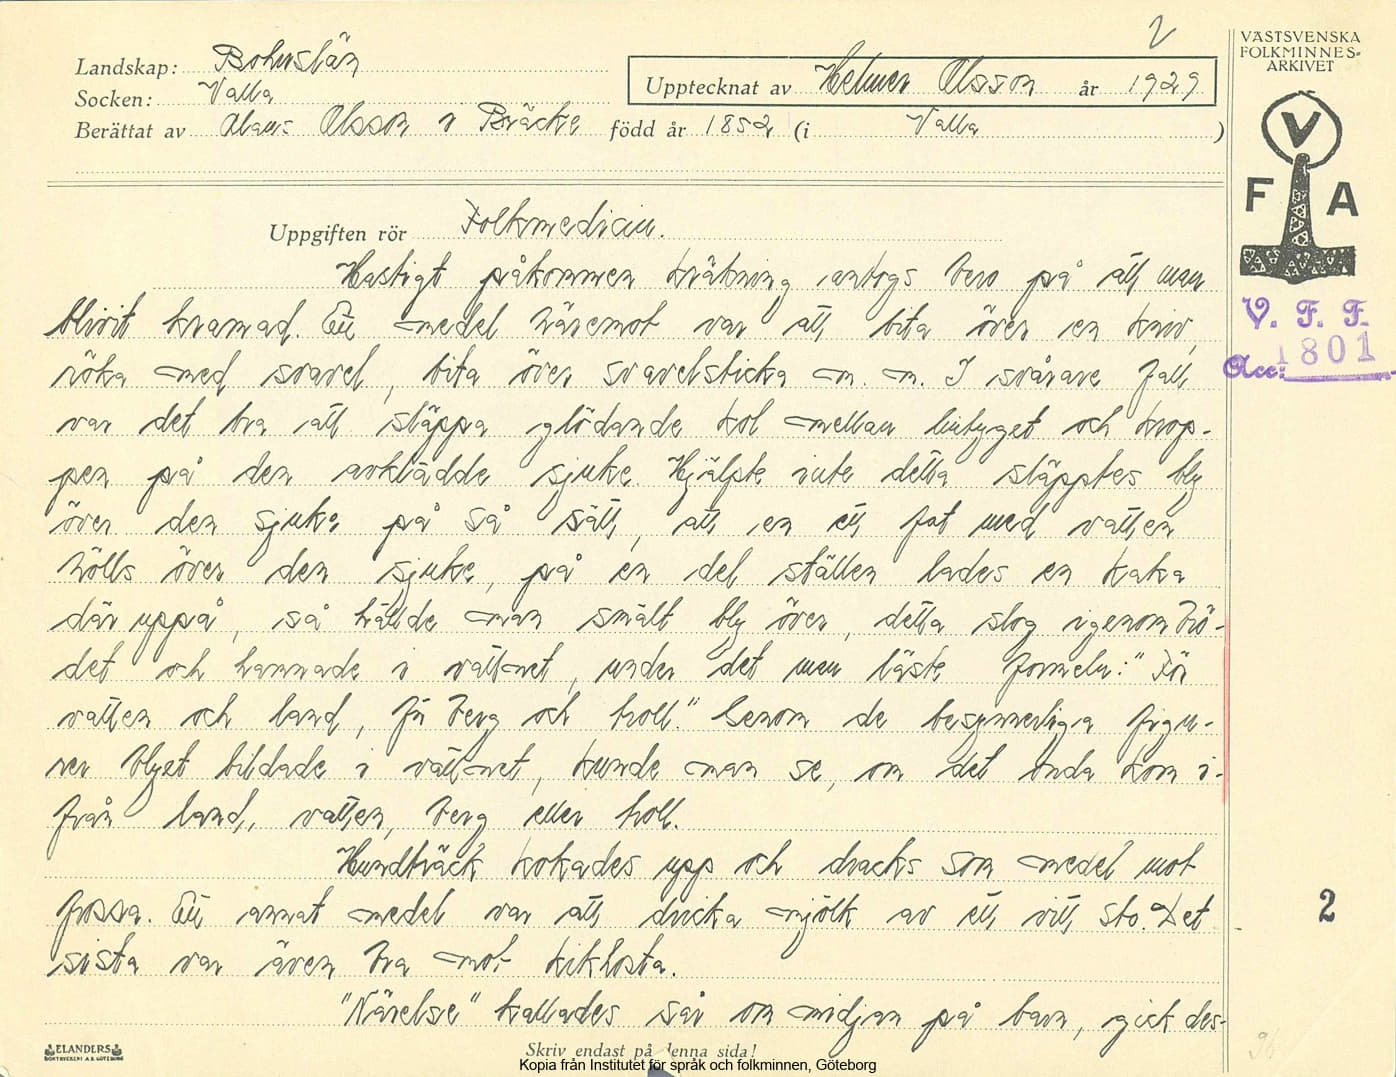 2
Landskap: Bohuslän
Socken: Valla
Upptecknat av Helmer Olsson år 1929
Berättat av Olaus Olsson i Bräcke född år 1852 (i Valla)
VÄSTSVENSKA
FOLKMINNES-
ARKIVET
V
F A
V. F. F.
Acc: 1801
Uppgiften rör Folkmedicin.
Hastigt påkommen kräkning antogs bero på att man
blivit kramad. Ett medel häremot var att bita över en kniv,
röka med svavel, bita över svavelsticka m. m. I svårare fall
var det bra att släppa glödande kol mellan lintyget och krop-
pen på den avklädde sjuke. Hjälpte inte detta släpptes bly
över den sjuke på så sätt, att en ett fat med vatten
hölls över den sjuke, på en del ställen lades en kaka
där uppå, så hällde man smält bly över, detta slog igenom brö-
det och hamnade i vattnet, under det man läste formeln: "För
vatten och land, för berg och troll." Genom de besynnerliga figu-
rer blyet bildade i vattnet, kunde man se, om det onda kom i-
från land, vatten, berg eller troll.
Hundträck kokades upp och dracks som medel mot
frossa. Ett annat medel var att dricka mjölk av ett vitt sto. Det
sista var även bra mot kikhosta.
"Närelse" kallades sår om midjan på barn, gick des-
2
ELANDERS
BOKTRYCKERI A.B. GÖTEBORG
Skriv endast på denna sida!
96
Kopia från Institutet för språk och folkminnen, Göteborg